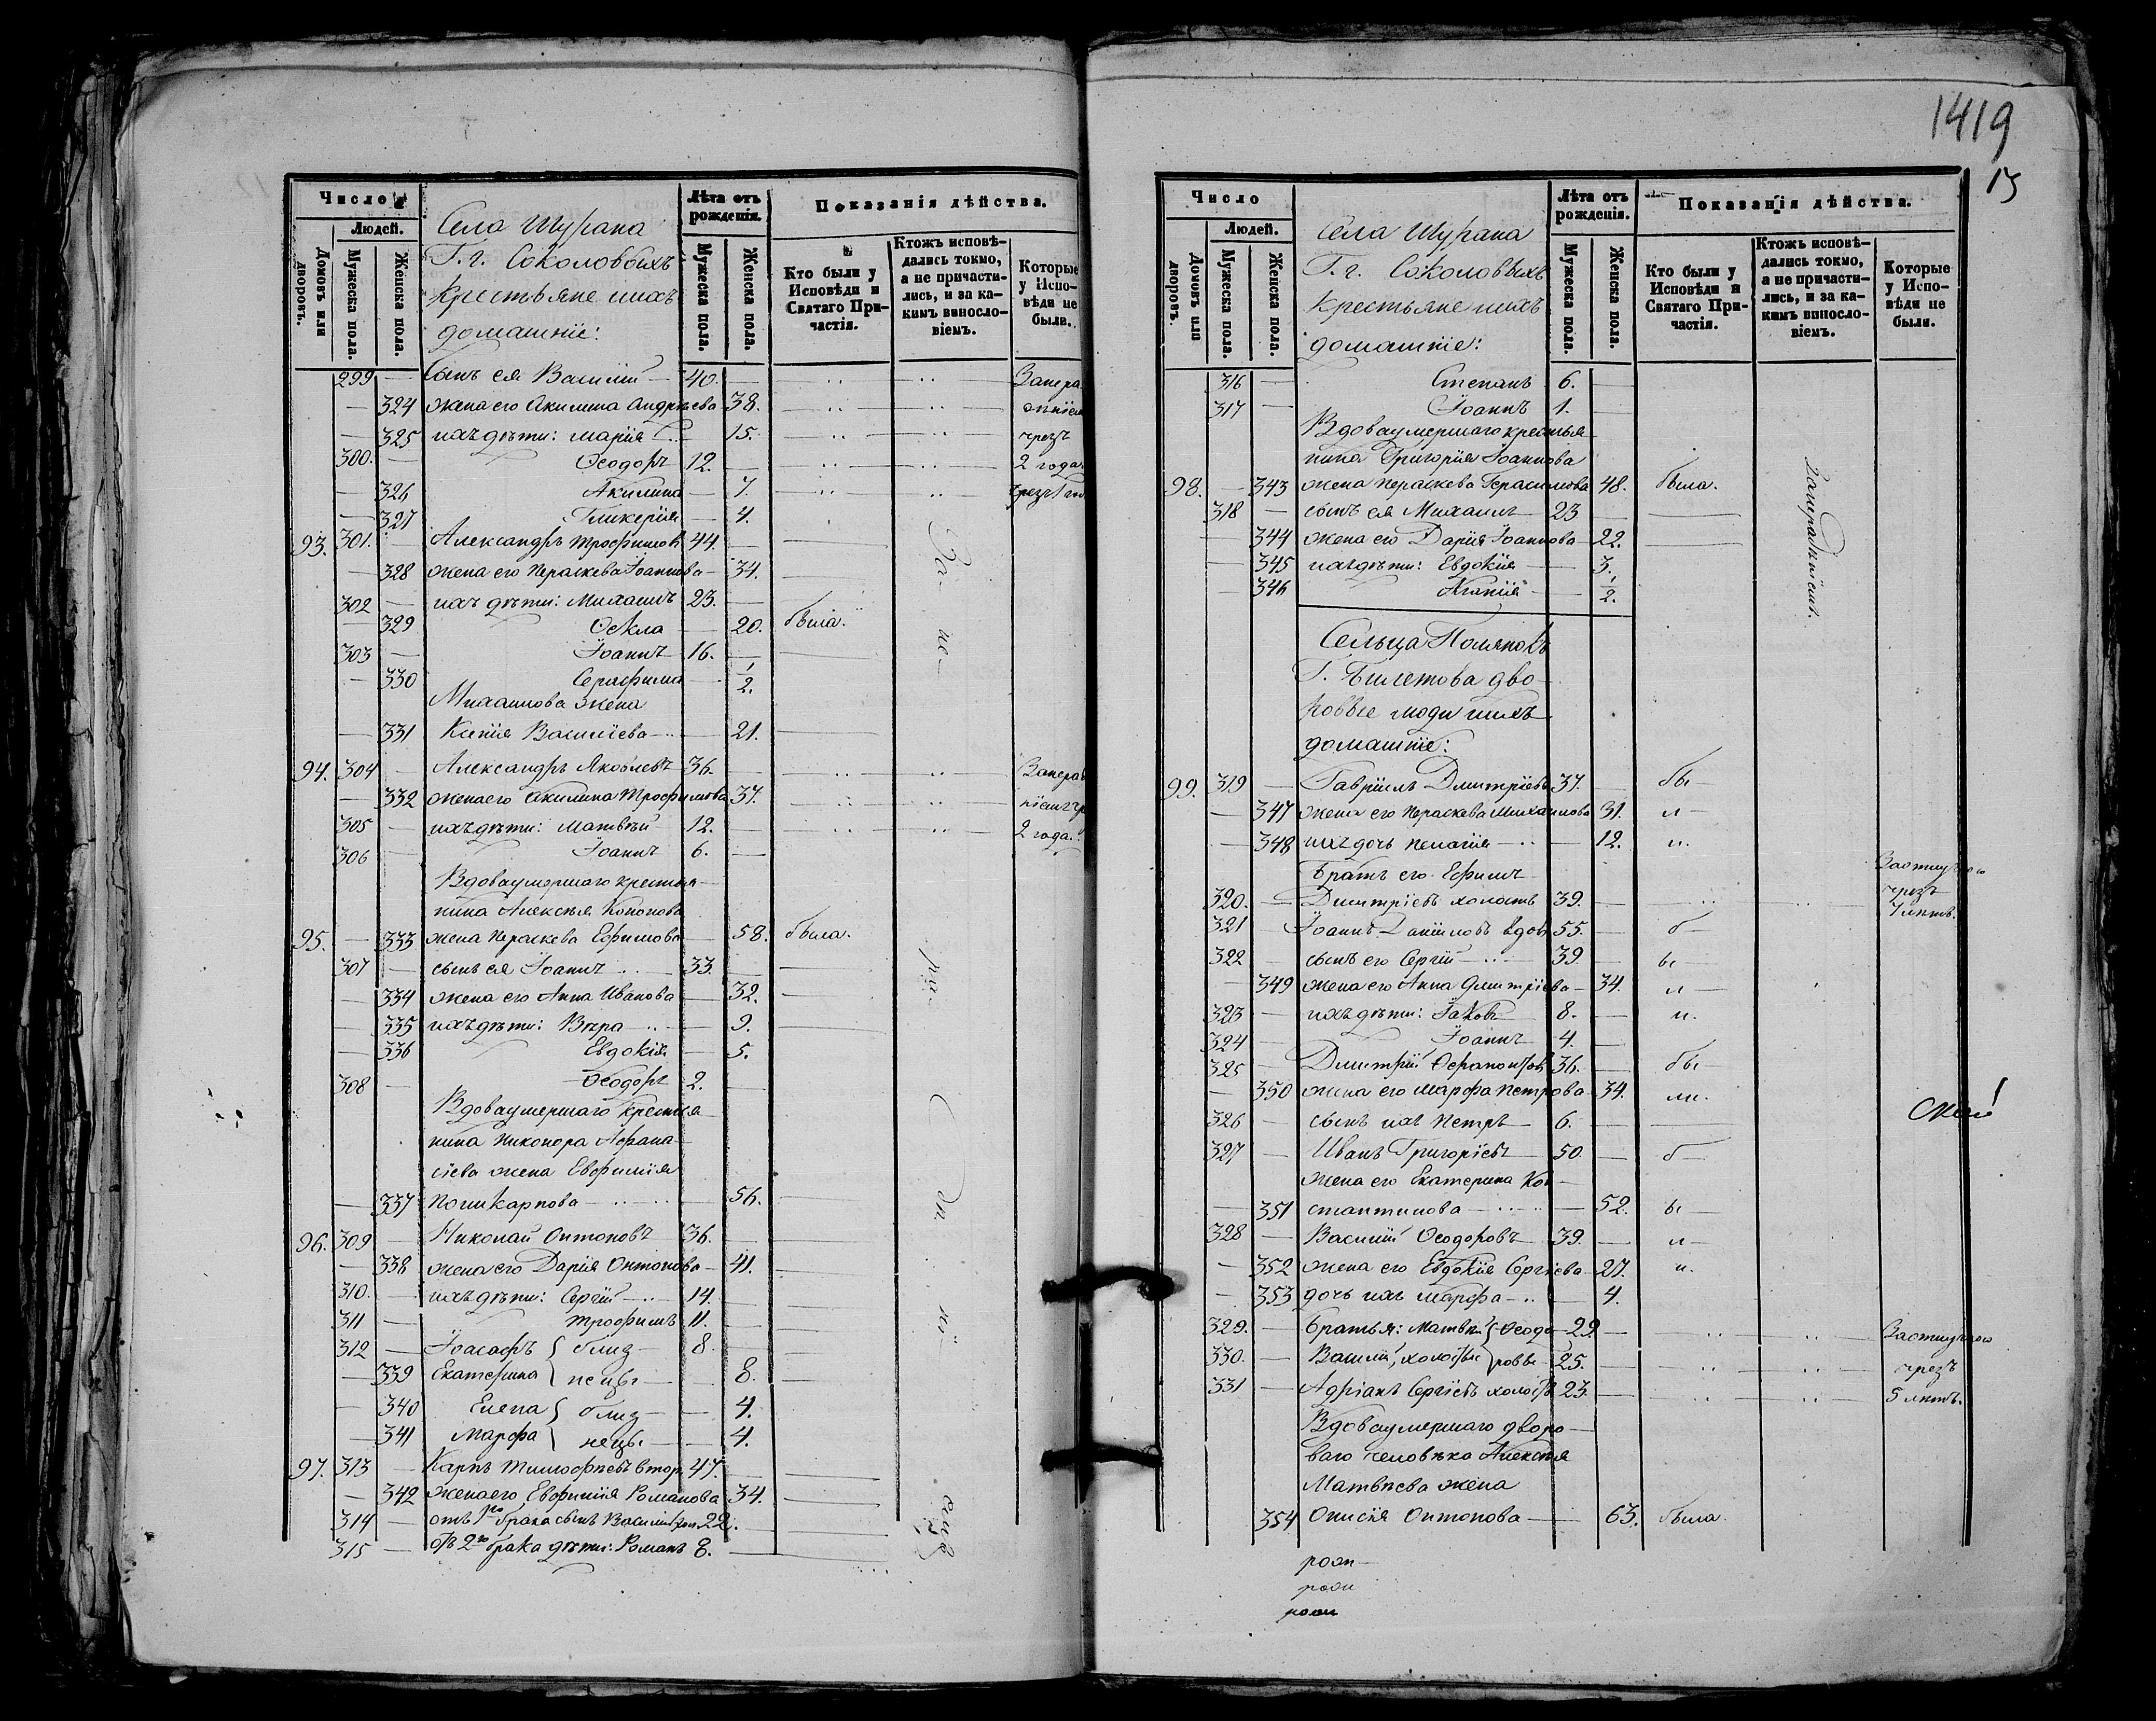 Число
Людей.
Домовъ или дворовъ.
Мужеска пола.
Женска пола.
Села Шурана
Г.г. Соколовыхъ
крестьяне и ихъ
домашніе:
Лѣта отъ рожденія.
Мужеска пола.
Женска пола.
Показанія дѣйства.
Кто были у Исповѣди и Святаго Причастія.
Ктожъ исповѣдались токмо, а не причастились, и за какимъ винословіемъ.
Которые у Исповѣди не были.
299 — Сынъ ея Василій — 40. —
— 324 жена его Акилина Андрѣева 38.
— 325 ихъ дѣти: Марія — 15. чрезъ
300. — Ѳеодоръ 12. — 2 года
— 326 Акилина — 7.
— 327 Гликерія — 4.
93. 301. — Александръ Трофимовъ 44. —
— 328 жена его Параскева Іоаннова — 34.
302 — ихъ дѣти: Михаилъ 23. —
— 329 Ѳекла — 20. была.
303 — Іоаннъ 16. —
— 330 Серафима — 1/2.
Михаилова жена
— 331 Ксенія Василіева — 21.
94. 304 — Александръ Яковлевъ 36. —
— 332 жена его Акилина Трофимова 37.
305 — ихъ дѣти: Матвѣй — 12. — 2 года.
306 — Іоаннъ 6. —
Вдова умершаго крестья-
нина Алексѣя Кононова
95. — 333 жена Параскева Ефимова — 58. была.
307 — сынъ ея Іоаннъ 33. —
— 334 жена его Анна Иванова — 32.
— 335 ихъ дѣти: Вѣра — 9.
— 336 Евдокія — 5.
308 — Ѳеодоръ 2. —
Вдова умершаго крестья-
нина Никонора Афана-
сіева жена Евфимія
— 337 Поликарпова — 56.
96. 309 — Николай Онтоновъ 36. —
— 338 жена его Дарія Онтонова — 41.
310. — ихъ дѣти: Сергій — 14. —
311 — Трофимъ 11. —
312 — Іоасафъ { близ- 8. —
— 339 Екатерина { нецы — 8.
— 340 Елена { близ- — 4.
— 341 Марфа { нецы — 4.
97. 313 — Карпъ Тимофѣевъ втор. 47. —
— 342 жена его Евфимія Романова 34.
314 — отъ 1го брака сынъ Василій 22.
315 — отъ 2го брака дѣти: Романъ 8. —
1419
15
Число
Людей.
Домовъ или дворовъ.
Мужеска пола.
Женска пола.
Села Шурана
Г.г. Соколовыхъ
крестьяне и ихъ
домашніе:
Лѣта отъ рожденія.
Мужеска пола.
Женска пола.
Показанія дѣйства.
Кто были у Исповѣди и Святаго Причастія.
Ктожъ исповѣдались токмо, а не причастились, и за какимъ винословіемъ.
Которые у Исповѣди не были.
316 — Степанъ 6. —
317 — Іоаннъ 1. —
Вдова умершаго крестья-
нина Григорія Іоаннова
98. — 343 жена Параскева Герасимова 48. была.
318 — сынъ ея Михаилъ — 23 —
— 344 жена его Дарія Іоаннова — 22.
— 345 ихъ дѣти: Евдокія — 3.
— 346 Агапія — 1/2.
Сельца Полянокъ
двор-
овые люди и ихъ
домашніе:
99. 319 — Гавріилъ Дмитріевъ 37. — бы-
— 347 жена его Параскева Михаилова 31. л-
— 348 ихъ дочь Пелагія — 12. и.
Братъ его Ефимъ
320. — Дмитріевъ холостъ 39. — чрезъ
321 — Іоаннъ Даниловъ вдов 55. — б-
322 — сынъ его Сергій — 39. — ы-
— 349 жена его Анна Дмитріева — 34. л-
323 — ихъ дѣти: Іаковъ — 8. — и.
324 — Іоаннъ 4. —
325 — Дмитрій Ѳерапонтов 36. — бы-
— 350 жена его Марфа Петрова — 34. ли.
326 — сынъ ихъ Петръ — 6. —
327 — Иванъ Григоріевъ — 50. — б-
жена его Екатерина Кон-
— 351 стантинова — 52. ы-
328 — Василій Ѳеодоровъ 39. — л-
— 352 жена его Евдокія Сергіева — 27. и.
— 353 дочь ихъ Марфа — 4.
329. — Братья: Матвѣй } Ѳеодо- 29 —
330. — Василій, холосты } ровы 25. — чрезъ
331 — Адріанъ Сергіевъ холостъ 23. — 5 лѣтъ.
Вдова умершаго дворо-
ваго человѣка Алексѣя
Матвѣева жена
354 Онисія Онтонова — 63. была.